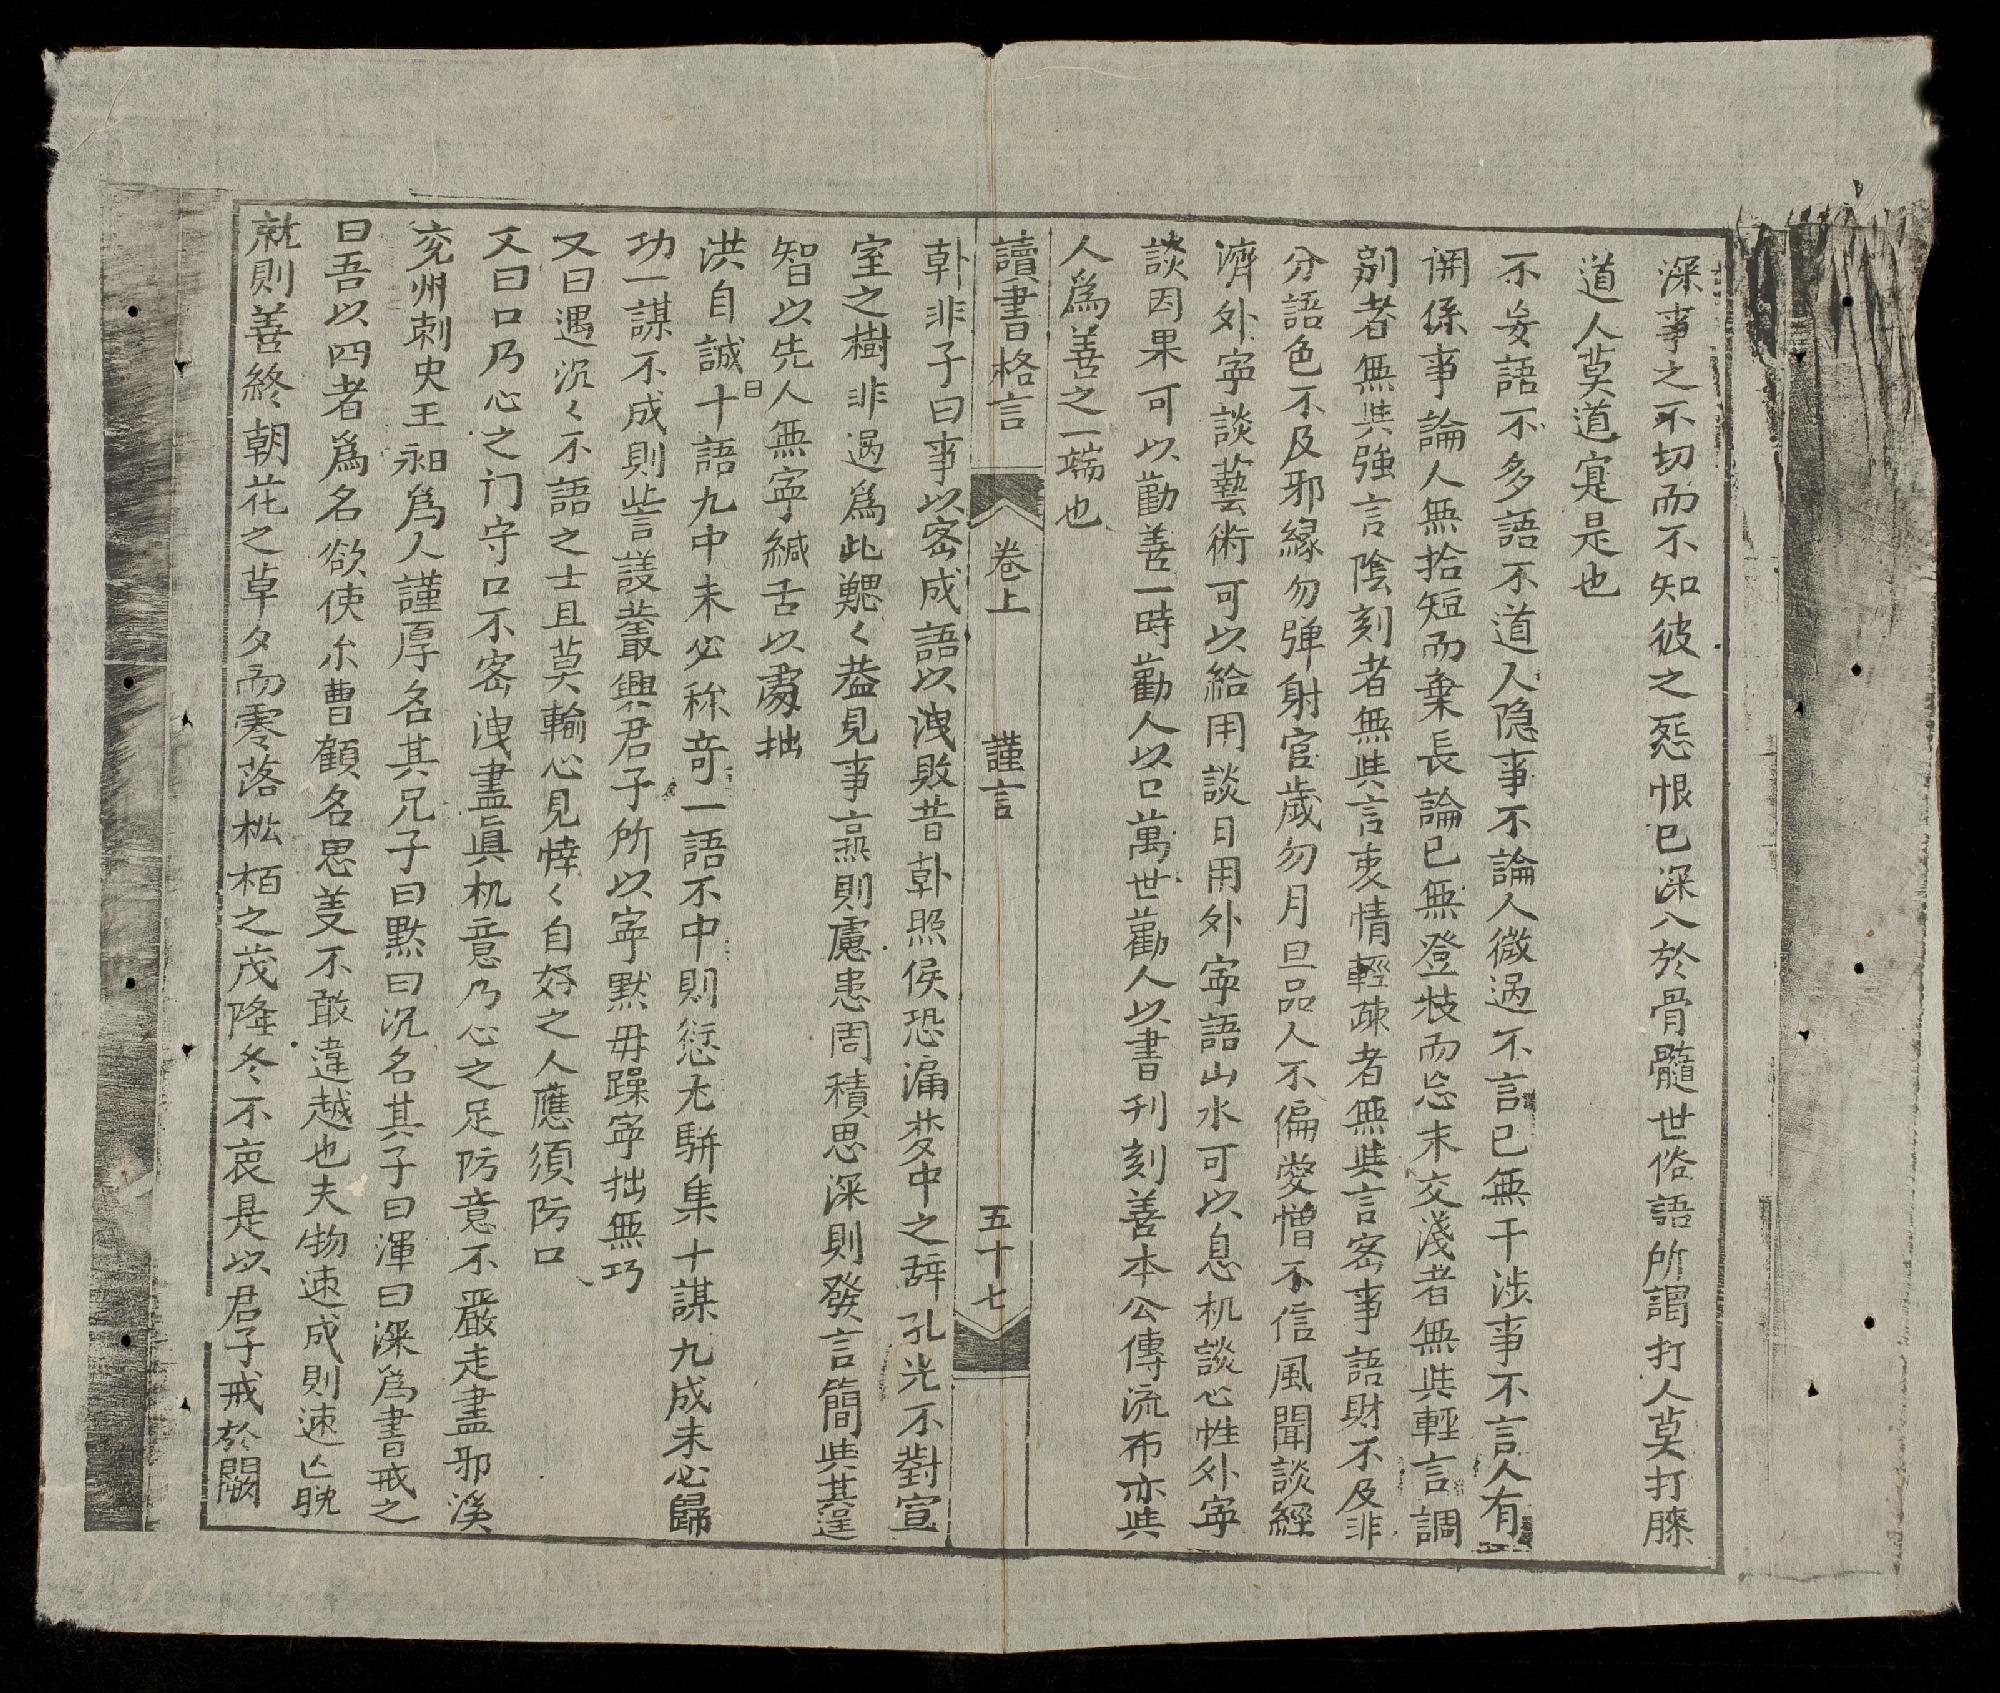 深事之不切而不知彼之怨恨已深入於骨髓世俗語所謂打人莫打膝
道人莫道寔是也
不妄語不多語不道人隐事不論人微過不言已無干涉事不言人有
関係事論人無拾短而棄長論已無登枝而忘末交淺者無與輕言調
别者無與強言陰刻者無與言衷情輕疎者無與言密事語財不及非
分語色不及邪緣勿弹射官歲勿月旦品人不偏愛憎不信風聞談經
濟外寧談藝術可以給用談日用外寧語山水可以息机談心性外寧
談因果可以勸善一時勸人以口萬世勸人以書刊刻善本公傳流布亦與
人爲善之一端也
讀書格言 卷上 謹言 五十七
韩非子曰事以密成語以洩敗昔韩照侯恐漏梦中之辞孔光不對宣
室之樹非過爲此鰓〻葢見事熹則慮患周積思深則發言簡與其逞
智以先人無寧緘舌以處拙
洪自誠曰十語九中未必称竒一語不中則愆尤駢集十謀九成未必歸
功一謀不成則訾議叢興君子所以寧黙毋躁寧拙無巧
又曰遇沉〻不語之士且莫輸心見悻〻自好之人應須防口
又曰口乃心之门守口不密洩盡眞机意乃心之足防意不嚴走盡邪溪
兖州刺史王昶爲人謹厚名其兄子曰黙曰沉名其子曰渾曰深爲書戒之
曰吾以四者爲名欲使尒曹顧名思義不敢違越也夫物速成則速亾晩
就則善終朝花之草夕而零落松栢之茂隆冬不哀是以君子戒於闕